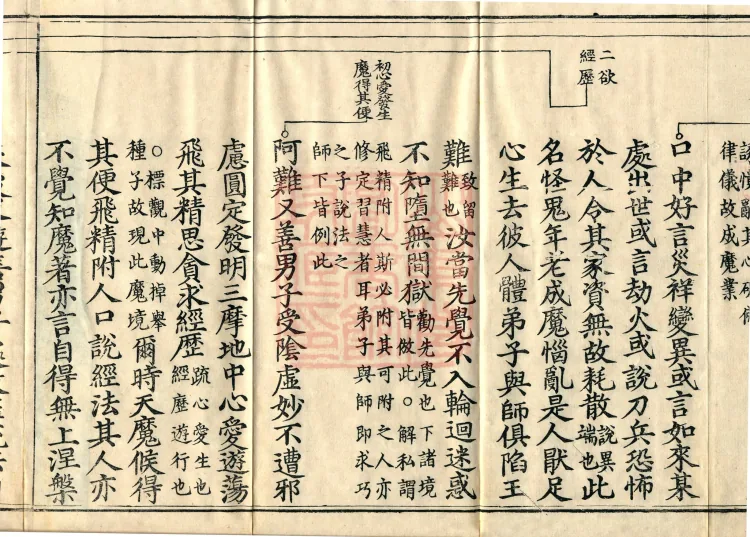 律儀故成魔業
口中好言災祥變異或言如來某
處出世或言劫火或說刀兵恐怖
於人令其家資無故耗散說異端也此
名怪鬼年老成魔惱亂是人厭足
二欲
經歷
心生去彼人體弟子與師俱陷王
難致留難也汝當先覺不入輪迴迷惑
不知墮無間獄勸先覺也下諸境皆倣此○解私謂
飛精附人斯必附其可附之人亦
修定習慧者耳弟子與師即求巧
之子說法之
師下皆例此
初心愛發生
魔得其便
阿難又善男子受陰虛妙不遭邪
慮圓定發明三摩地中心愛遊蕩
飛其精思貪求經歷疏心愛生也經歷遊行也
○標觀中動掉舉種子故現此魔境爾時天魔候得
其便飛精附人口說經法其人亦
不覺知魔著亦言自得無上涅槃